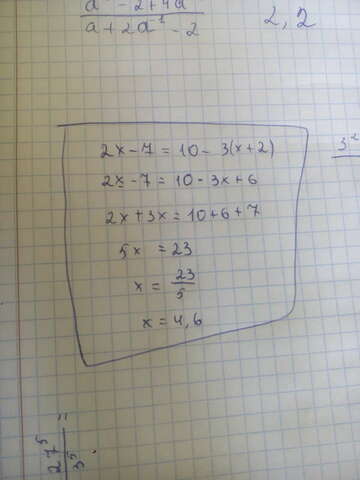 a + 2a¹ - 2
2,2
2x - 7 = 10 - 3(x+2)
2x - 7 = 10 - 3x + 6
2x + 3x = 10 + 6 + 7
5x = 23
x = 23/5
x = 4,6
27⁵/3⁵